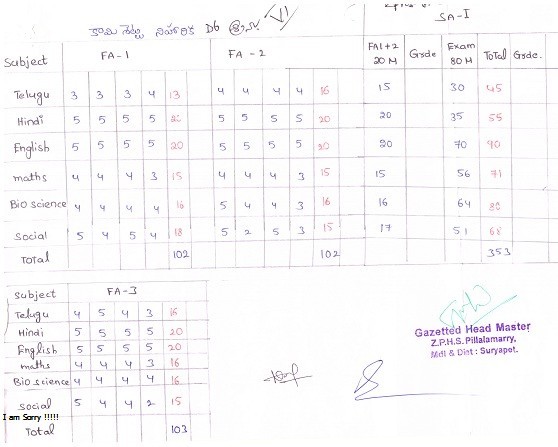 కామిశెట్టి నిహారిక D/o శ్రీను VI
SA-I
Subject FA-1 FA - 2 FA1+2 20 M Grde Exam 80 M Total Grde.
Telugu 3 3 3 4 13 4 4 4 4 16 15 30 45
Hindi 5 5 5 5 20 5 5 5 5 20 20 35 55
English 5 5 5 5 20 5 5 5 5 20 20 70 90
maths 4 4 4 3 15 4 4 4 3 15 15 56 71
Bio science 4 4 4 4 16 5 4 4 3 16 16 64 80
Social 5 4 5 4 18 5 2 5 3 15 17 51 68
Total 102 102 353
Subject FA-3
Telugu 4 5 4 3 16
Hindi 5 5 5 5 20
English 5 5 5 5 20
maths 4 4 4 3 16
Bio science 4 4 4 4 16
social 5 4 4 2 15
I am Sorry !!!!!
Total 103
Gazetted Head Master
Z.P.H.S. Pillalamarry,
Mdl & Dint : Suryapet.